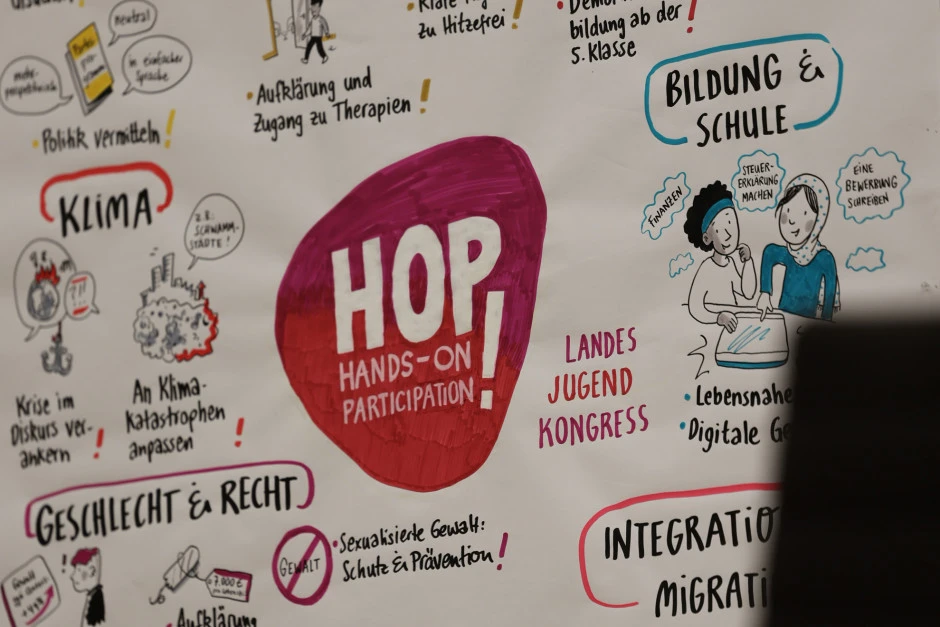 neutral
in einfacher
Sprache
mehr-
perspektivisch
• Politik vermitteln!
zu Hitzefrei!
• Aufklärung und
Zugang zu Therapien!
bildung ab der
5. Klasse!
BILDUNG &
SCHULE
FINANZEN
STEUER-
ERKLÄRUNG
MACHEN
EINE
BEWERBUNG
SCHREIBEN
• Lebensnahe
• Digitale
KLIMA
z.B.
SCHWAMM-
STÄDTE!
?!!
Krise im
Diskurs ver-
ankern!
An Klima-
katastrophen
anpassen!
HOP!
HANDS-ON
PARTICIPATION
LANDES
JUGEND
KONGRESS
GESCHLECHT & RECHT
GEWALT
• Sexualisierte Gewalt:
Schutz & Prävention!
7.000 €
Aufklärung
INTEGRATIO
MIGRATI